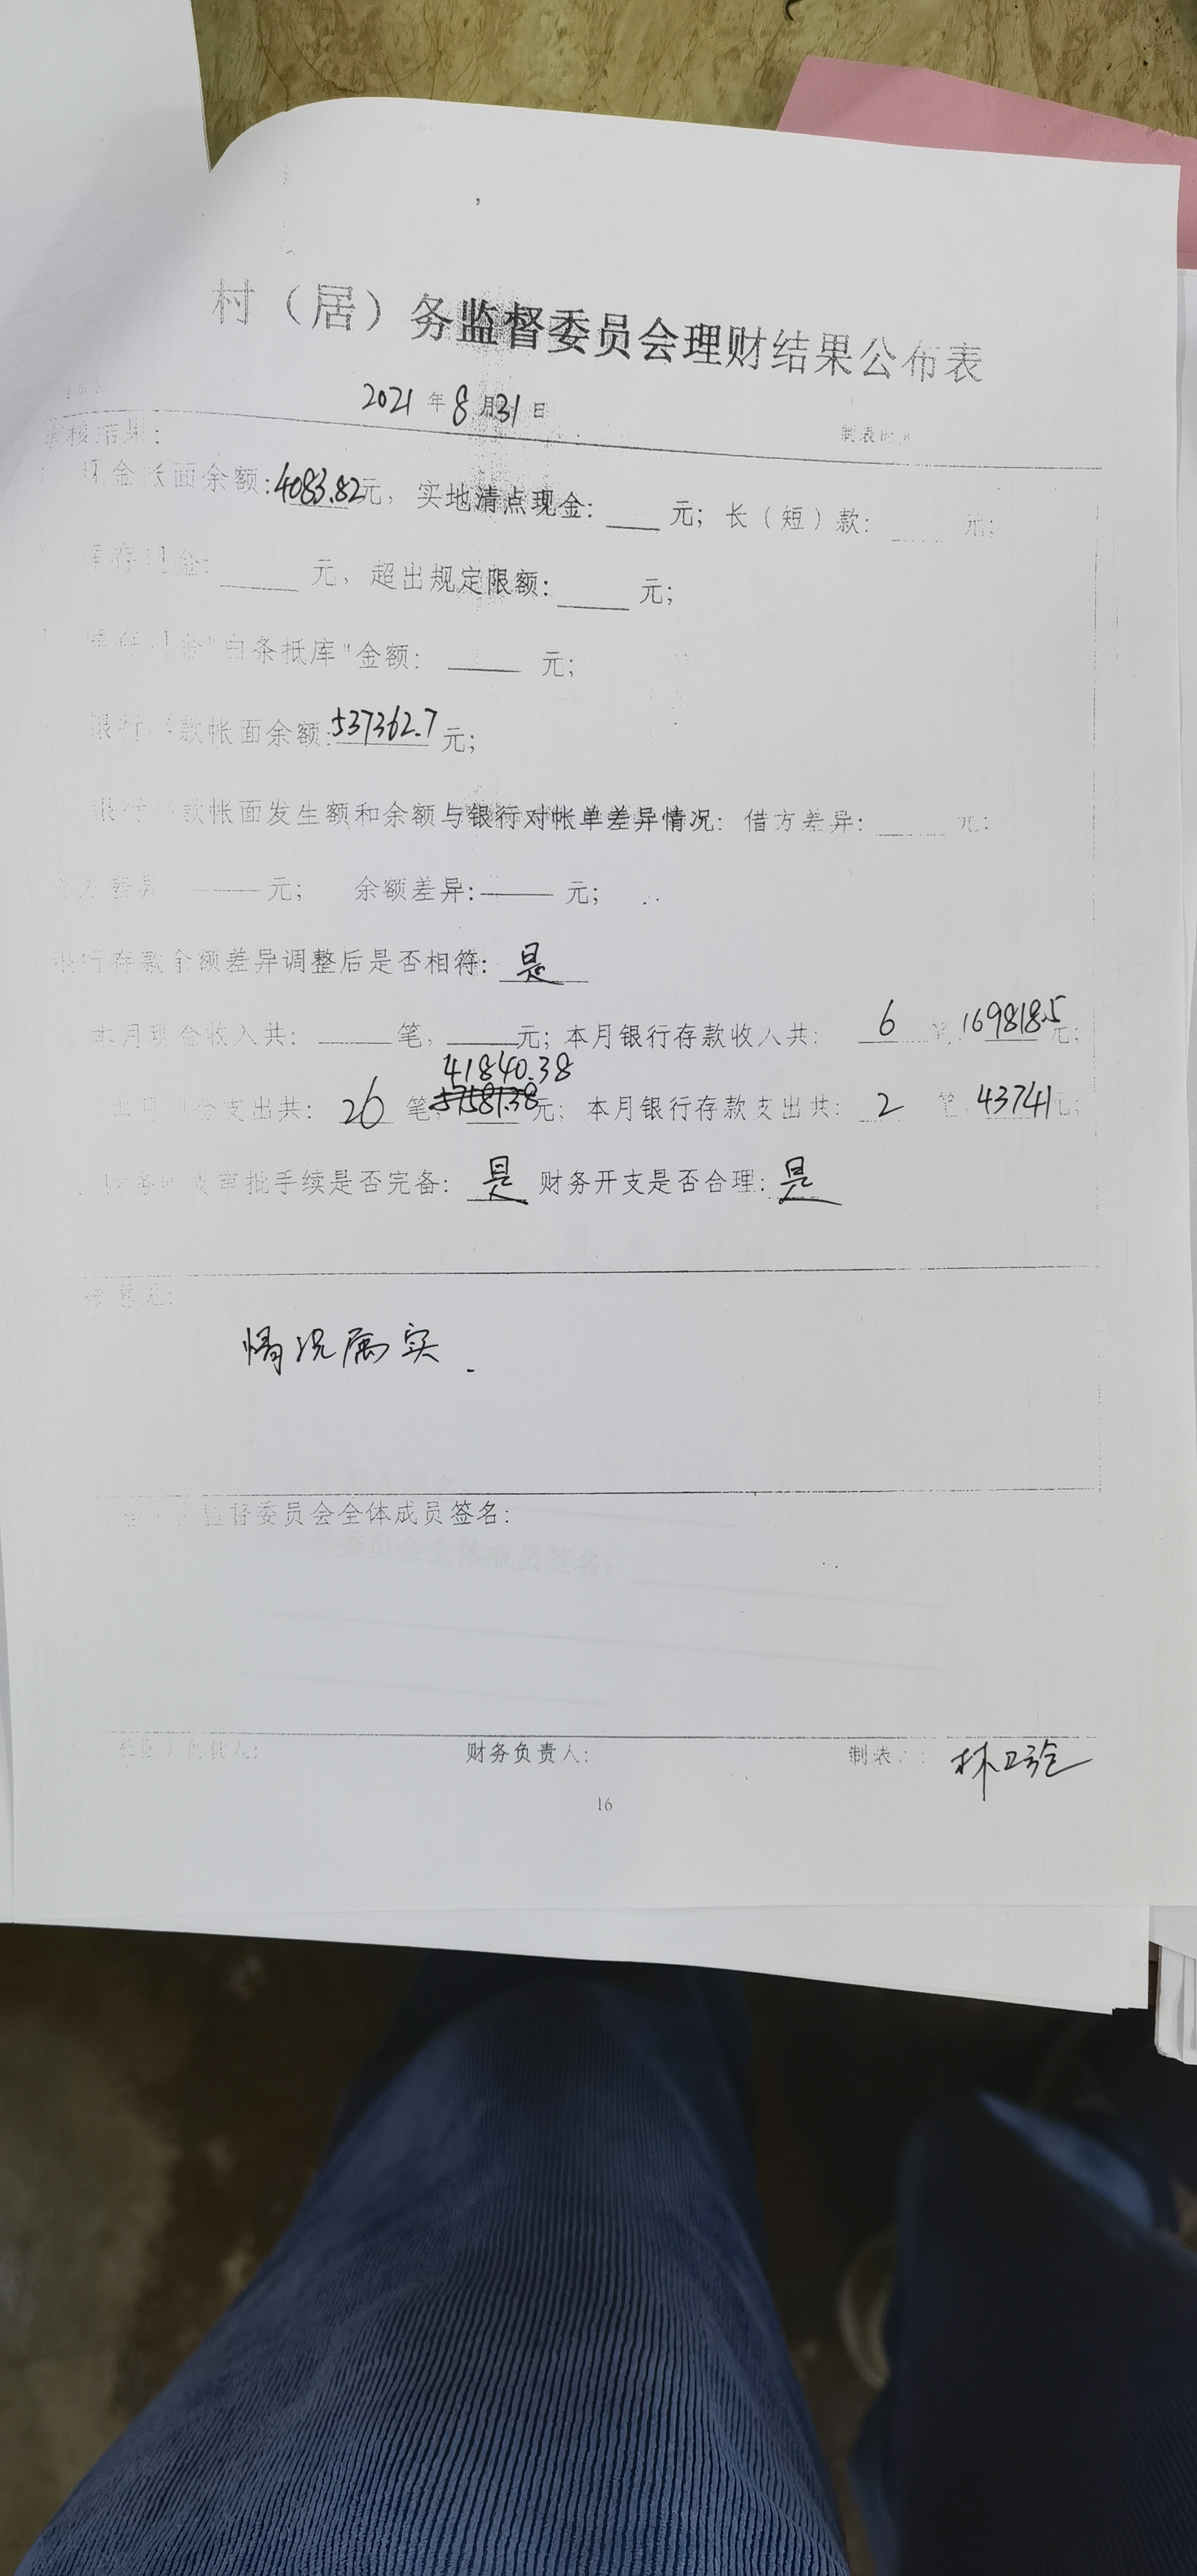 村（居）务监督委员会理财结果公布表
2021年8月31日 制表时间
审核结果：
现金帐面余额:4083.82元，实地清点现金:____元；长（短）款:____元；
库存现金:____元，超出规定限额:____元；
库存现金"白条抵库"金额:____元；
银行存款帐面余额:537362.7元；
银行存款帐面发生额和余额与银行对帐单差异情况：借方差异:____元；
贷方差异____元； 余额差异:____元；
银行存款余额差异调整后是否相符:是
本月现金收入共:____笔，____元；本月银行存款收入共: 6 笔，169818.5元；
41840.38
本月现金支出共: 26 笔，57581.38元；本月银行存款支出共: 2 笔，43741元；
审批手续是否完备: 是 财务开支是否合理:是
意见:
情况属实.
监督委员会全体成员签名:
负责人: 财务负责人: 制表 林
16